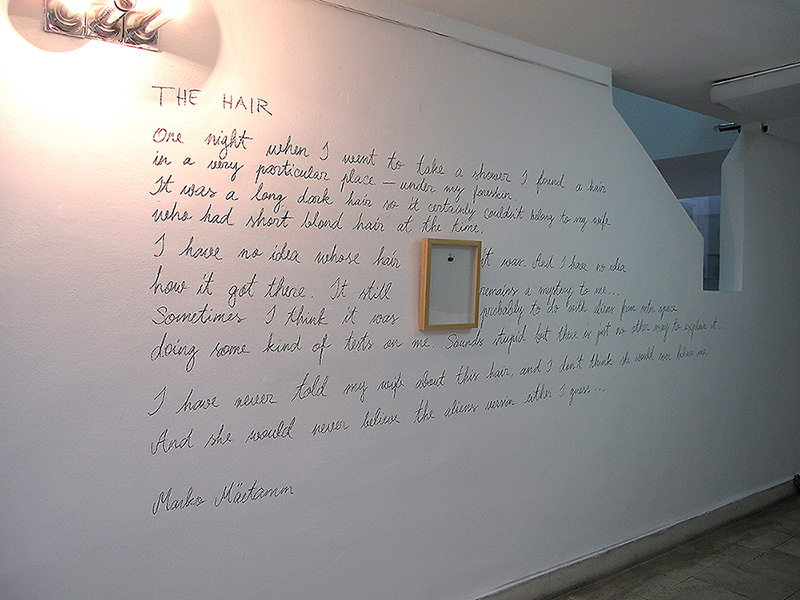 THE HAIR
One night when I went to take a shower I found a hair
in a very particular place – under my foreskin.
It was a long dark hair so it certainly couldn't belong to my wife
who had short blond hair at the time.
I have no idea whose hair it was. And I have no idea
how it got there. It still remains a mystery to me...
Sometimes I think it was probably to do with aliens from outer space
doing some kind of tests on me. Sounds stupid but there is just no other way to explain it...
I have never told my wife about this hair, and I don't think she would ever believe me.
And she would never believe the aliens version either I guess...
Marko Mäetamm